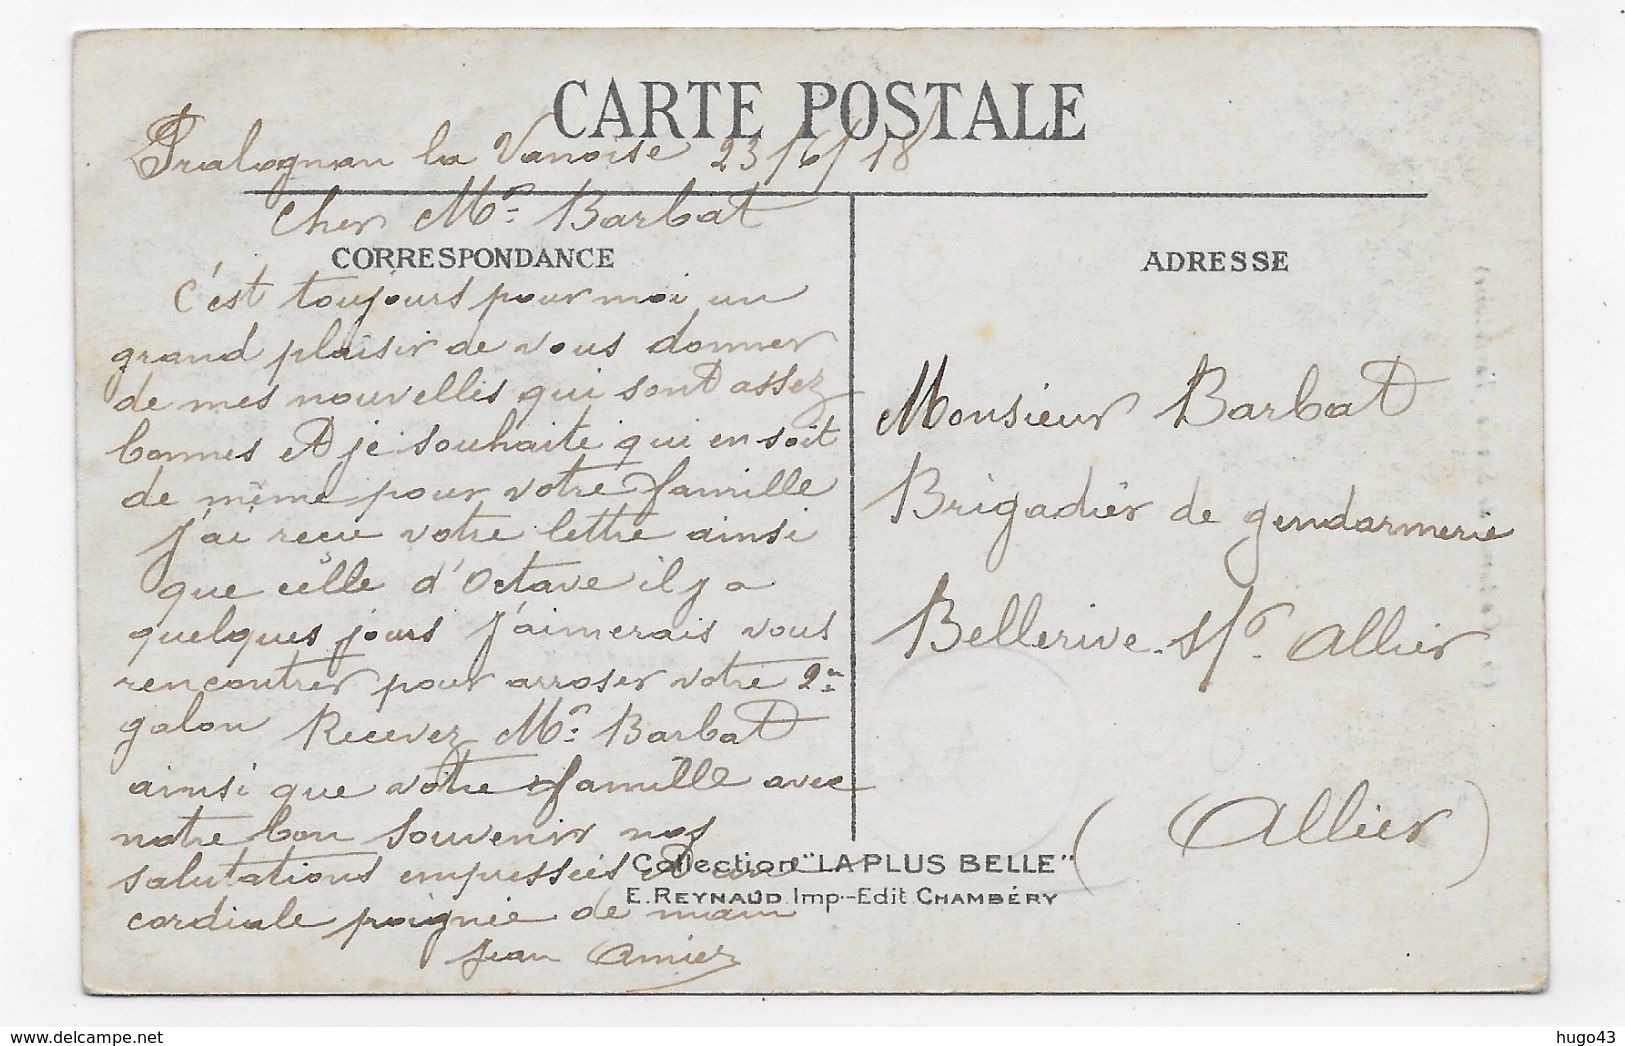 CARTE POSTALE
Pralognan la Vanoise 23/6/18
Cher Mr. Barbat
CORRESPONDANCE
c'est toujours pour moi un
grand plaisir de vous donner
de mes nouvelles qui sont assez
bonnes et je souhaite qui en soit
de même pour votre famille
j'ai reçue votre lettre ainsi
que celle d'Octave il y a
quelques jours j'aimerais vous
rencontrer pour arroser votre 2me
galon Recevez Mr. Barbat
ainsi que votre famille avec
notre bon souvenir nos
salutations empressées et une
cordiale poignée de main
Jean Amiez
ADRESSE
Monsieur Barbat
Brigadier de gendarmerie
Bellerive. S/o. Allier
(Allier)
Collection "LA PLUS BELLE"
E. REYNAUD. Imp.-Edit. CHAMBÉRY
delcampe.net
hugo43